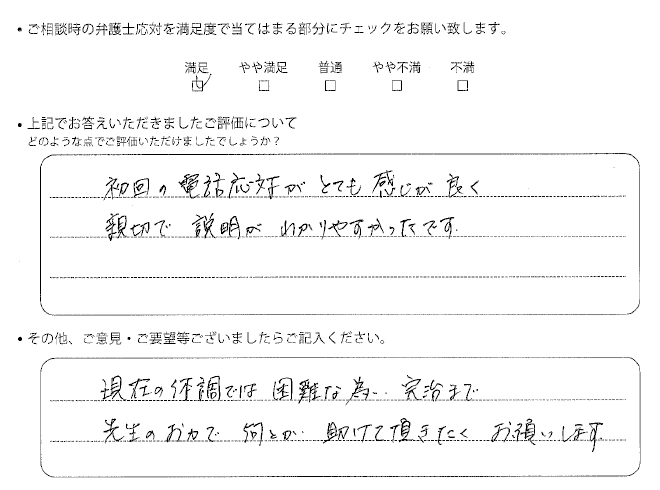 ・ご相談時の弁護士応対を満足度で当てはまる部分にチェックをお願い致します。
満足 やや満足 普通 やや不満 不満
・上記でお答えいただきましたご評価について
どのような点でご評価いただけましたでしょうか？
初回の電話応対がとても感じが良く
親切で説明がわかりやすかったです.
・その他、ご意見・ご要望等ございましたらご記入ください。
現在の体調では困難な為、完治まで
先生のお力で何とか助けて頂きたくお願いします.